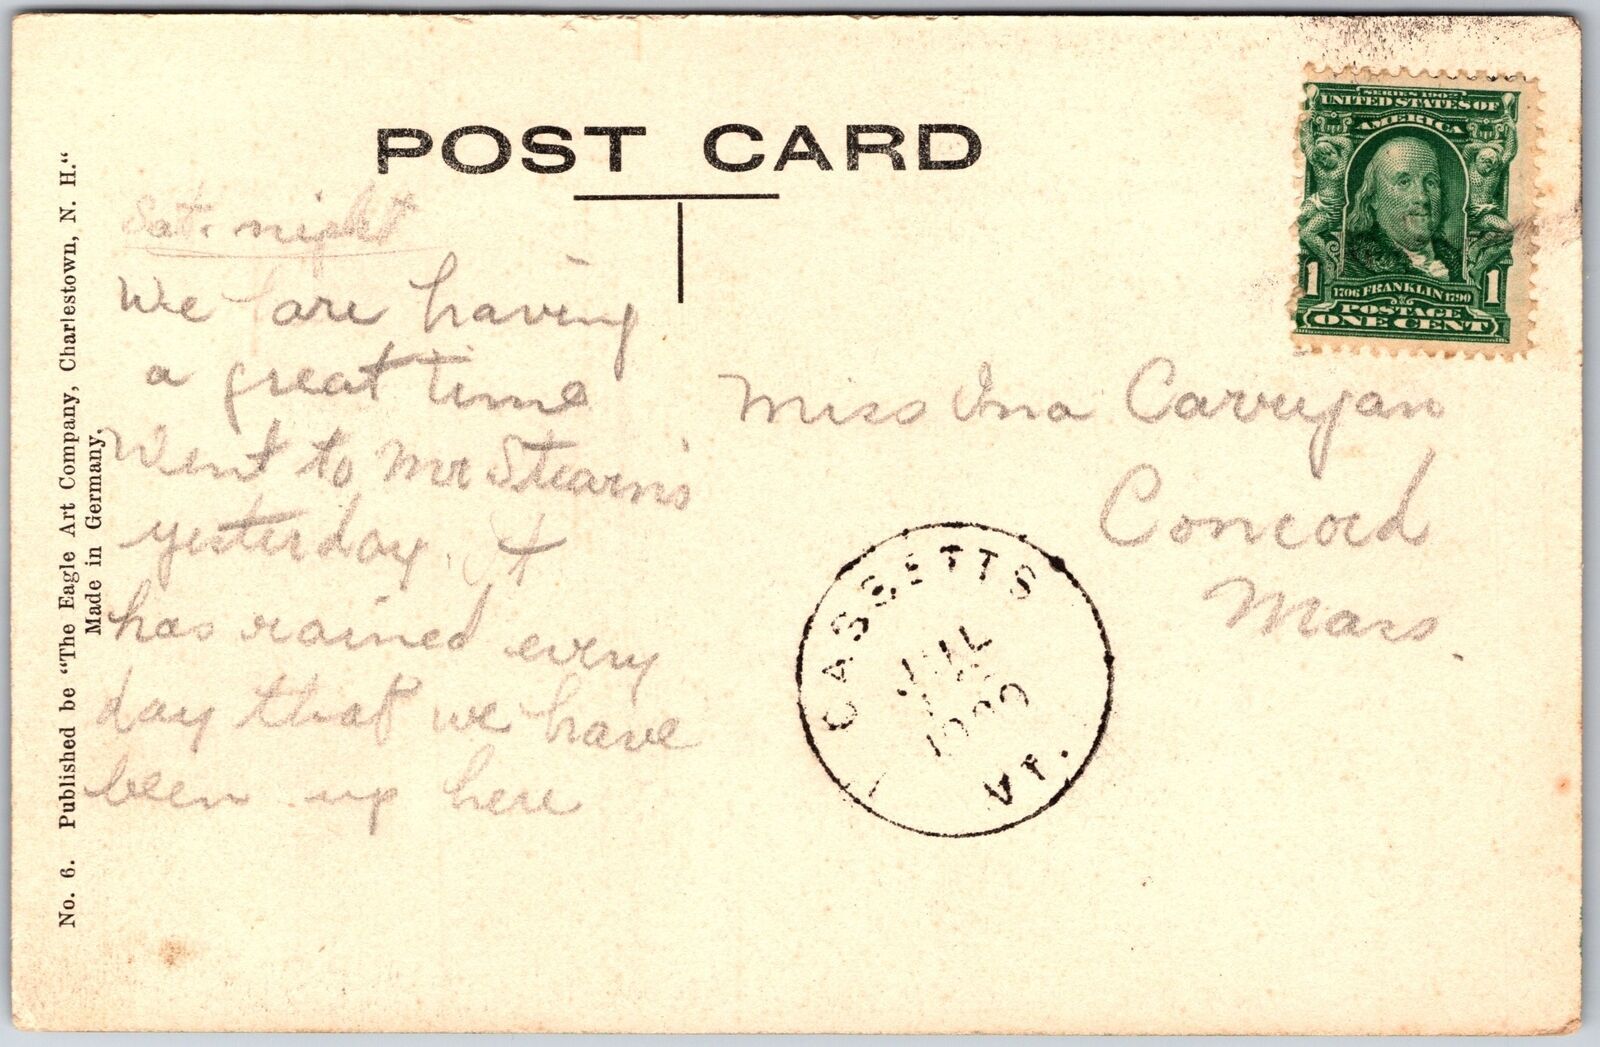 POST CARD
SERIES 1902
UNITED STATES OF
AMERICA
1 1
1706 FRANKLIN 1790
POSTAGE
ONE CENT
Sat. night
We are having
a great time
Went to Mr Stearns
yesterday. It
has rained every
day that we have
been up here
Miss Ina Carrigan
Concord
Mass.
CASSETTS
JUL
VT.
No. 6. Published be "The Eagle Art Company, Charlestown, N. H."
Made in Germany.